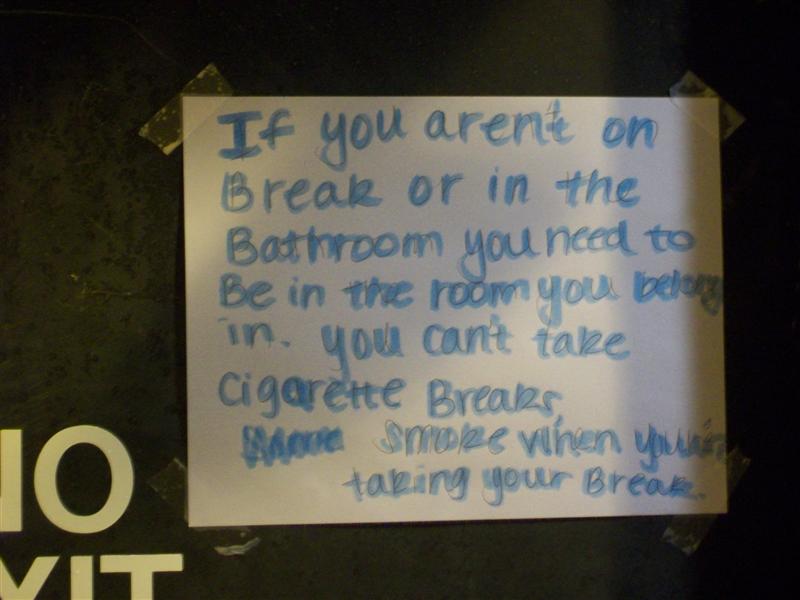 If you aren't on
Break or in the
Bathroom you need to
Be in the room you belong
in. you can't take
cigarette Breaks.
Smoke when you're
taking your Break.
NO
XIT